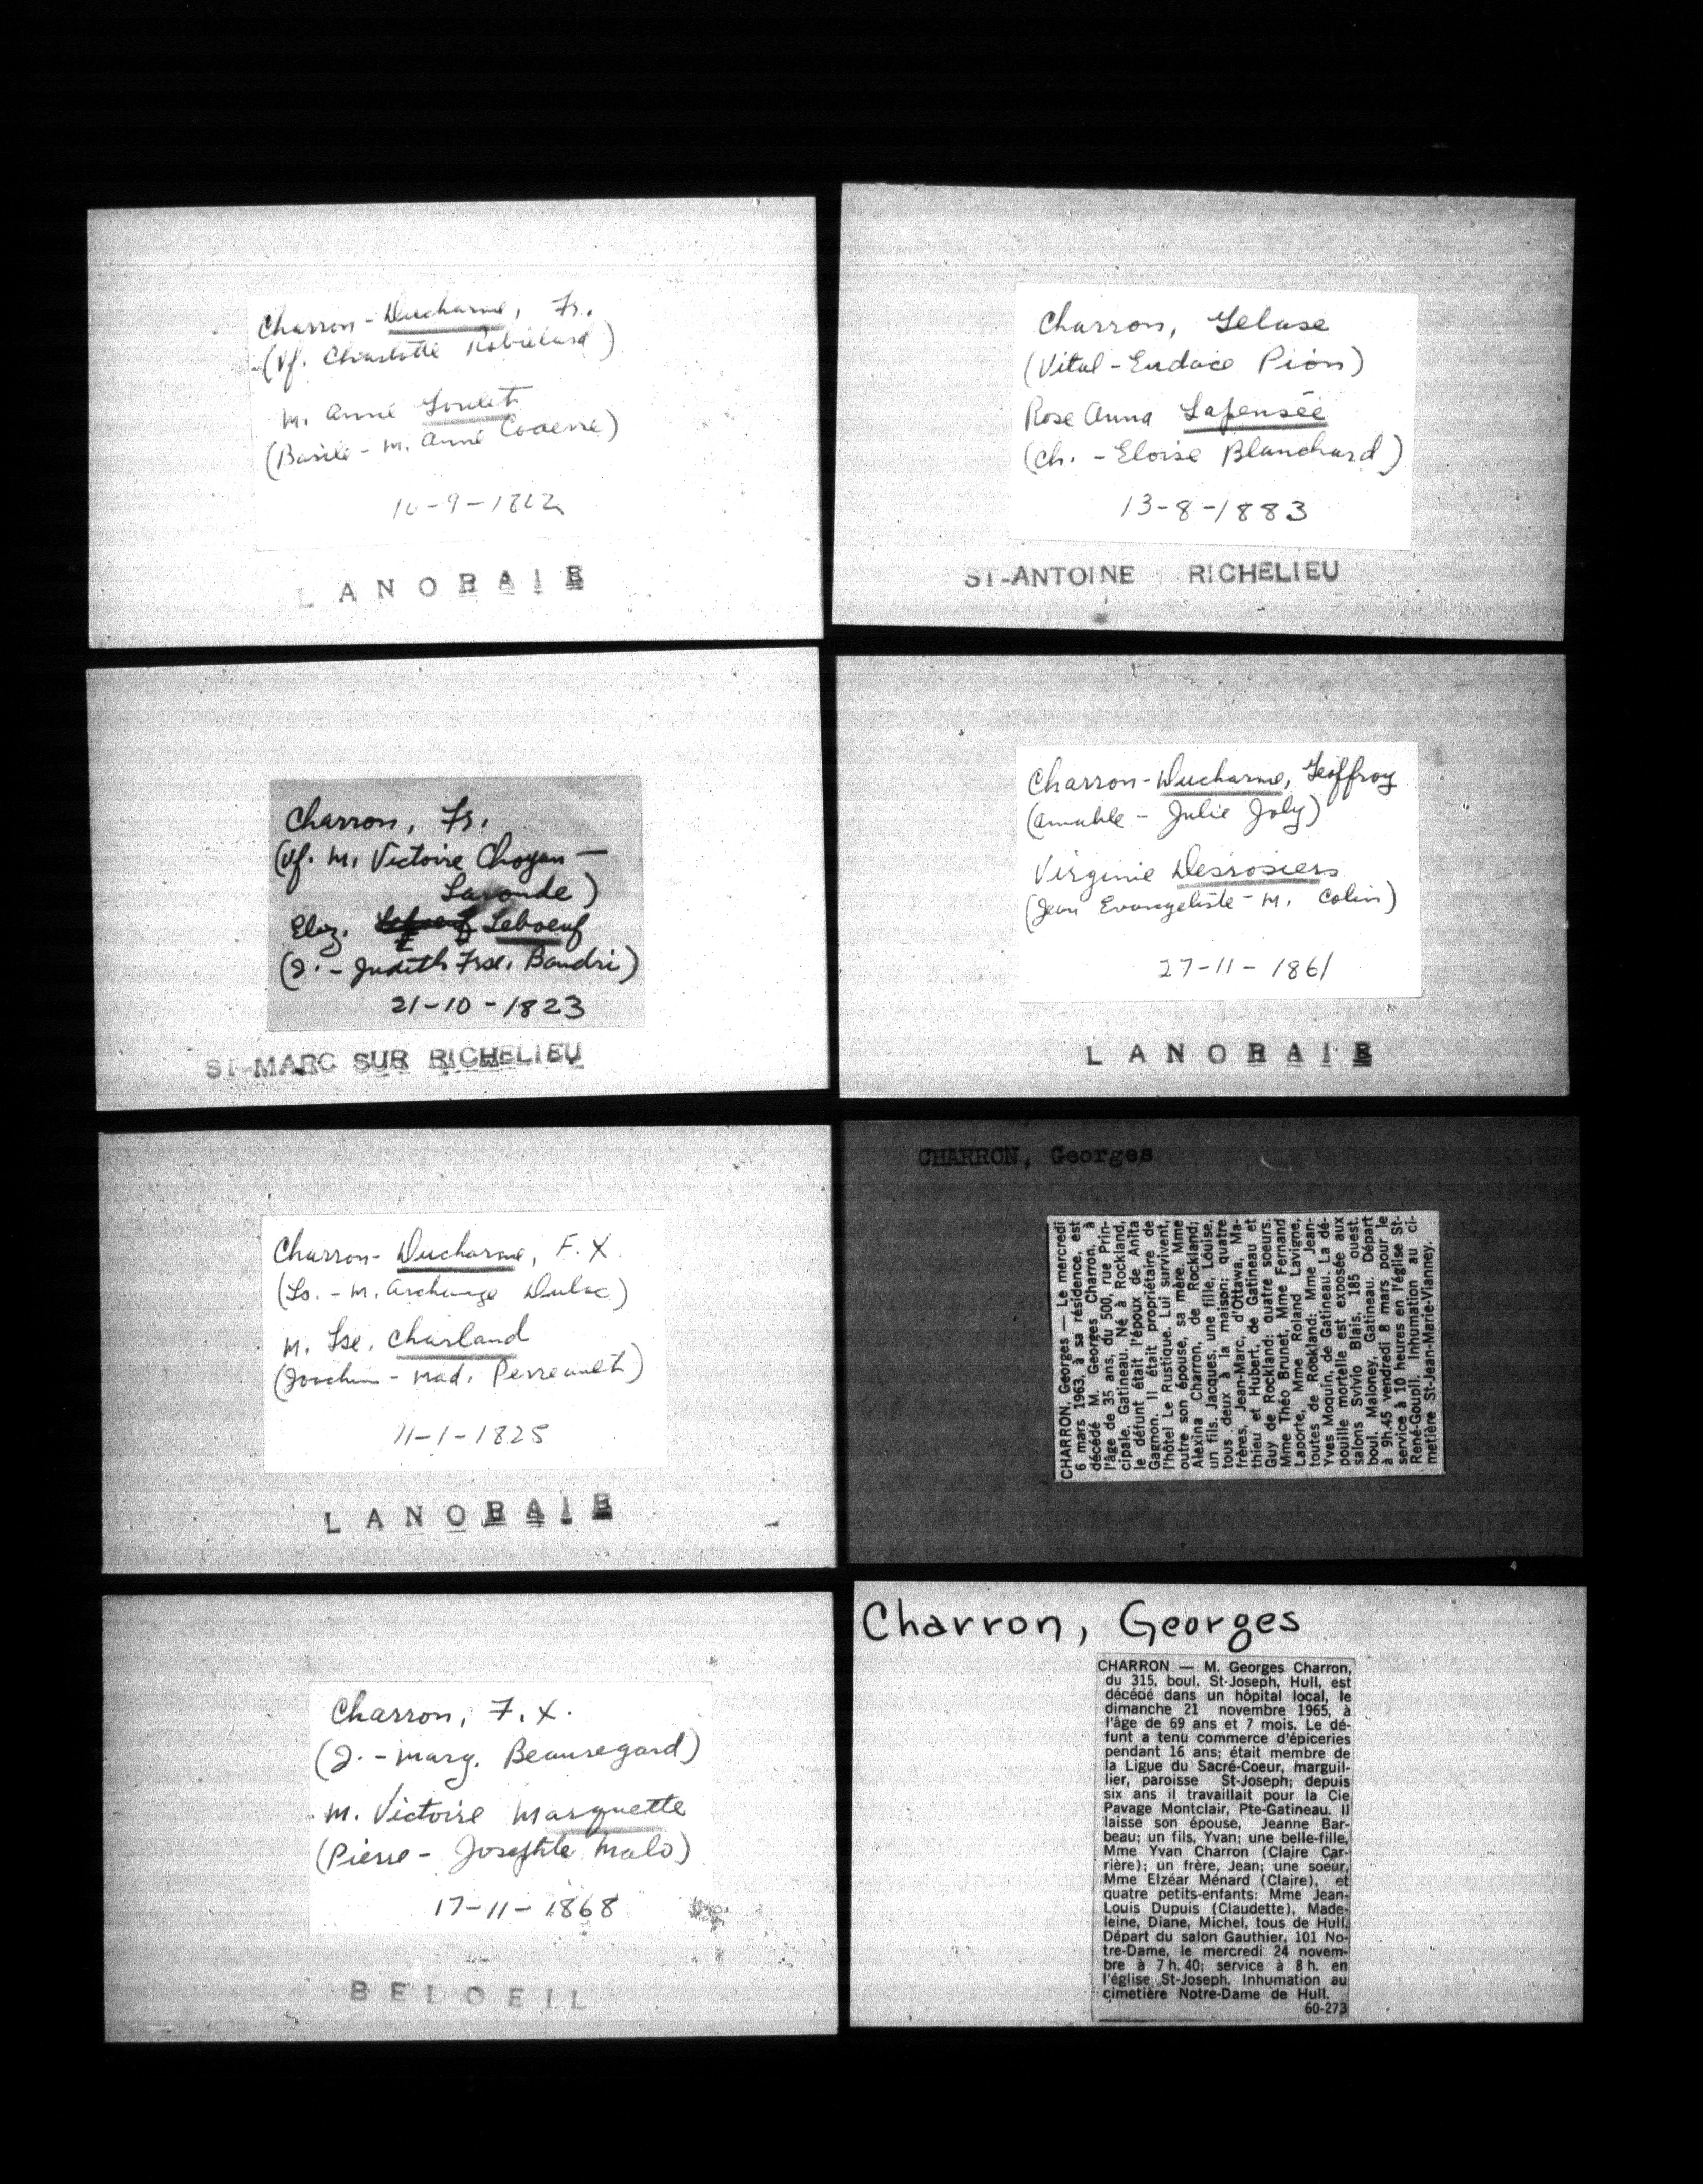 Charron-Ducharme, Fr.
(Vf. Charlotte Robillard)
M. Anne Goulet
(Basile - M. Anne Coderre)
-9-1822
LANORAIE
Charron, Fr.
(Vf. M. Victoire Choyan-
Laronde)
Eliz. Leboeuf
(J. - Judith Frse. Baudri)
21-10-1823
ST-MARC SUR RICHELIEU
Charron-Ducharme, F. X.
(Ls. - M. Archange Dulac)
M. Lse. Charland
(Joachim - Mad. Perreault)
11-1-1825
LANORAIE
Charron, F. X.
(J. - Marg. Beauregard)
M. Victoire Marquette
(Pierre - Josephte Malo)
17-11-1868
BELOEIL
Charron, Gelase
(Vital - Eudoce Pion)
Rose Anna Lapensée
(Ch. - Eloise Blanchard)
13-8-1883
ST-ANTOINE RICHELIEU
Charron-Ducharme, Geoffroy
(Amable - Julie Joly)
Virginie Desrosiers
(Jean Evangeliste - M. Colin)
27-11-1861
LANORAIE
CHARRON, Georges
CHARRON, Georges — Le mercredi
6 mars 1963, à sa résidence, est
décédé M. Georges Charron, à
l'âge de 35 ans, du 500, rue Prin-
cipale, Gatineau. Né à Rockland,
le défunt était l'époux de Anita
Gagnon. Il était propriétaire de
l'hôtel Le Rustique. Lui survivent,
outre son épouse, sa mère, Mme
Alexina Charron, de Rockland;
un fils, Jacques, une fille, Louise,
tous deux à la maison; quatre
frères, Jean-Marc, d'Ottawa, Ma-
thieu et Hubert, de Gatineau et
Guy de Rockland: quatre soeurs.
Mme Théo Brunet, Mme Fernand
Laporte, Mme Roland Lavigne,
toutes de Rockland: Mme Jean-
Yves Moquin, de Gatineau. La dé-
pouille mortelle est exposée aux
salons Sylvio Blais, 185 ouest.
boul. Maloney, Gatineau. Départ
à 9h.45 vendredi 8 mars pour le
service à 10 heures en l'église St-
René-Goupil. Inhumation au ci-
metière St-Jean-Marie-Vianney.
Charron, Georges
CHARRON — M. Georges Charron,
du 315, boul. St-Joseph, Hull, est
décédé dans un hôpital local, le
dimanche 21 novembre 1965, à
l'âge de 69 ans et 7 mois. Le dé-
funt a tenu commerce d'épiceries
pendant 16 ans; était membre de
la Ligue du Sacré-Coeur, marguil-
lier, paroisse St-Joseph; depuis
six ans il travaillait pour la Cie
Pavage Montclair, Pte-Gatineau. Il
laisse son épouse, Jeanne Bar-
beau; un fils, Yvan; une belle-fille,
Mme Yvan Charron (Claire Car-
rière); un frère, Jean; une soeur,
Mme Elzéar Ménard (Claire), et
quatre petits-enfants: Mme Jean-
Louis Dupuis (Claudette), Made-
leine, Diane, Michel, tous de Hull.
Départ du salon Gauthier, 101 No-
tre-Dame, le mercredi 24 novem-
bre à 7 h. 40; service à 8 h. en
l'église St-Joseph. Inhumation au
cimetière Notre-Dame de Hull.
60-273